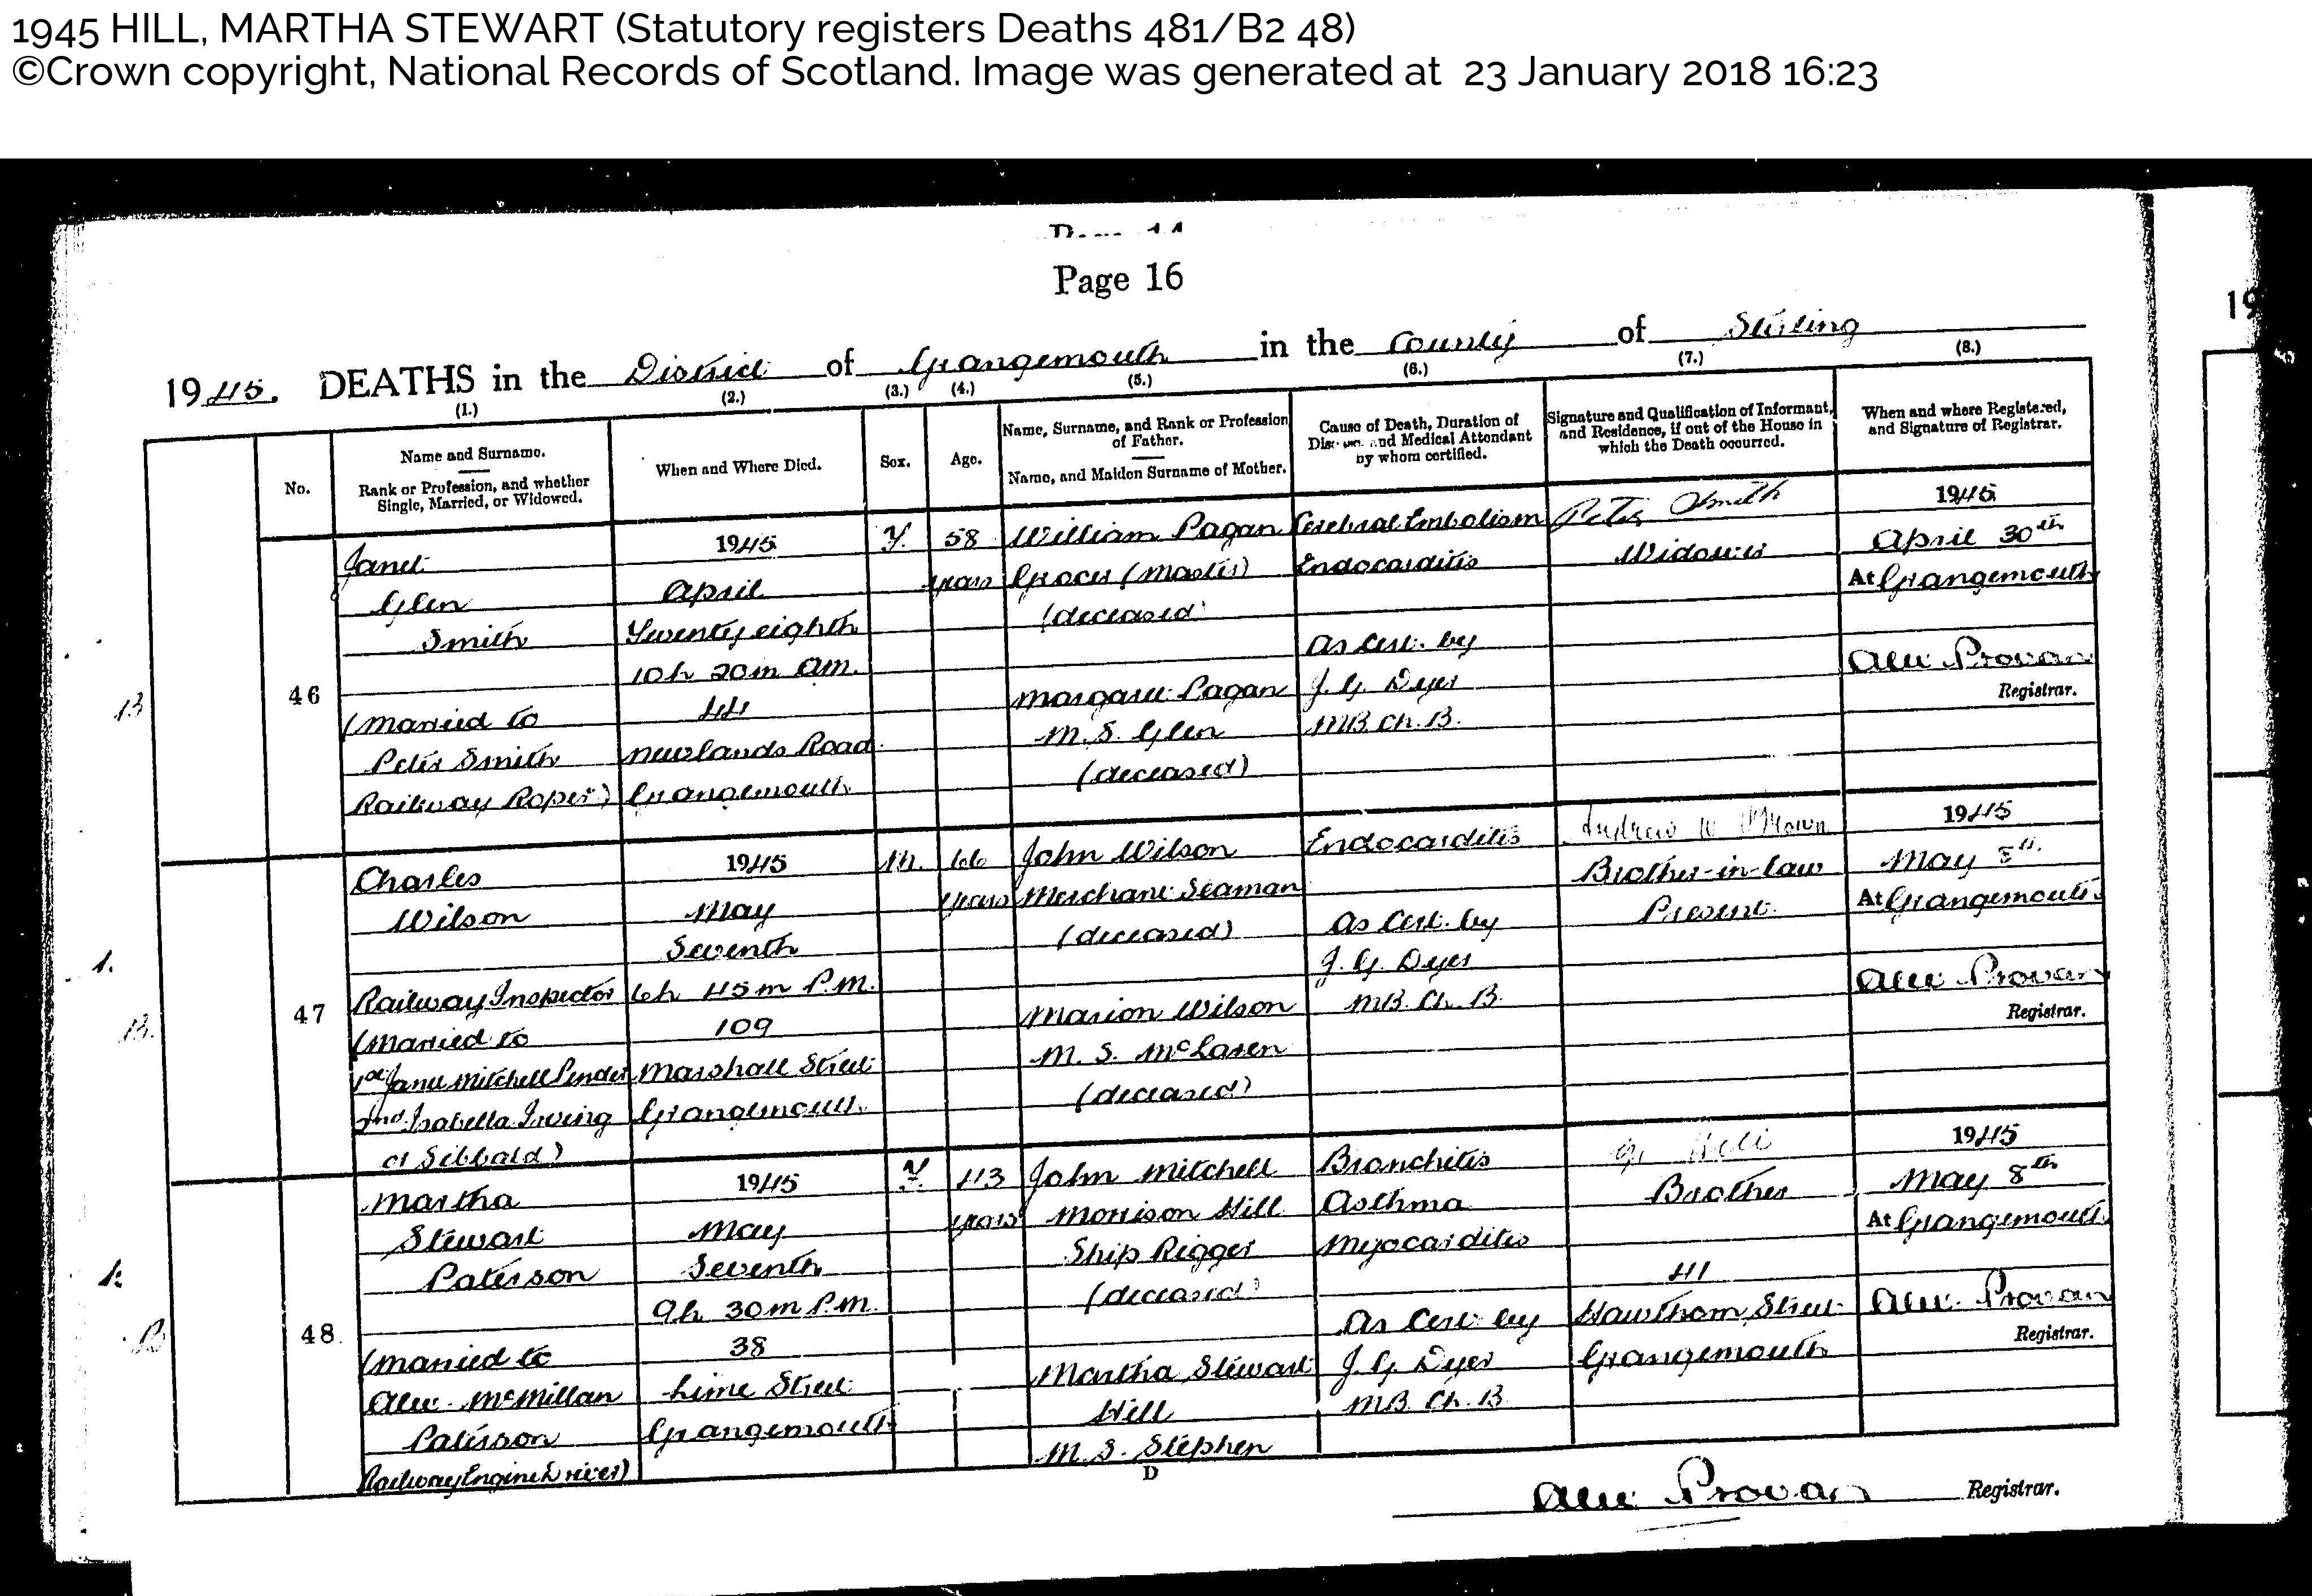 1945 HILL, MARTHA STEWART (Statutory registers Deaths 481/B2 48)
©Crown copyright, National Records of Scotland. Image was generated at 23 January 2018 16:23
Page 16
1945. DEATHS in the District of Grangemouth in the County of Stirling
(1.) (2.) (3.) (4.) (5.) (6.) (7.) (8.)
No.
Name and Surname.
Rank or Profession, and whether
Single, Married, or Widowed.
When and Where Died.
Sex.
Age.
Name, Surname, and Rank or Profession
of Father.
Name, and Maiden Surname of Mother.
Cause of Death, Duration of
Disease, and Medical Attendant
by whom certified.
Signature and Qualification of Informant,
and Residence, if out of the House in
which the Death occurred.
When and where Registered,
and Signature of Registrar.
46
Janet
Glen
Smith
(married to
Peter Smith
Railway Roper)
1945
April
Twenty eighth
10h 20m am.
44
Newlands Road
Grangemouth
F.
58
years
William Pagan
Grocer (Master)
(deceased)
Margaret Pagan
M.S. Glen
(deceased)
Cerebral Embolism
Endocarditis
As Cert. by
J. G. Dyer
MB. Ch. B.
Peter Smith
Widower
1945
April 30th
At Grangemouth
Alex Provan
Registrar.
47
Charles
Wilson
Railway Inspector
(married to
1st Janet Mitchell Pender
2nd Isabella Irving
or Sibbald)
1945
May
Seventh
6h 45m P.M.
109
Marshall Street
Grangemouth
M.
66
years
John Wilson
Merchant Seaman
(deceased)
Marion Wilson
M. S. McLaren
(deceased)
Endocarditis
As Cert. by
J. G. Dyer
MB. Ch. B.
Andrew
Brother-in-law
Present
1945
May 8th
At Grangemouth
Alex Provan
Registrar.
48
Martha
Stewart
Paterson
(married to
Alex. McMillan
Paterson
Railway Engine Driver)
1945
May
Seventh
9h 30m P.M.
38
Lime Street
Grangemouth
F.
43
years
John Mitchell
Morrison Hill
Ship Rigger
(deceased)
Martha Stewart
Hill
M. S. Stephen
Bronchitis
Asthma
Myocarditis
As Cert. by
J. G. Dyer
MB. Ch. B.
Hill
Brother
41
Hawthorn Street
Grangemouth
1945
May 8th
At Grangemouth
Alex. Provan
Registrar.
D
Alex Provan Registrar.